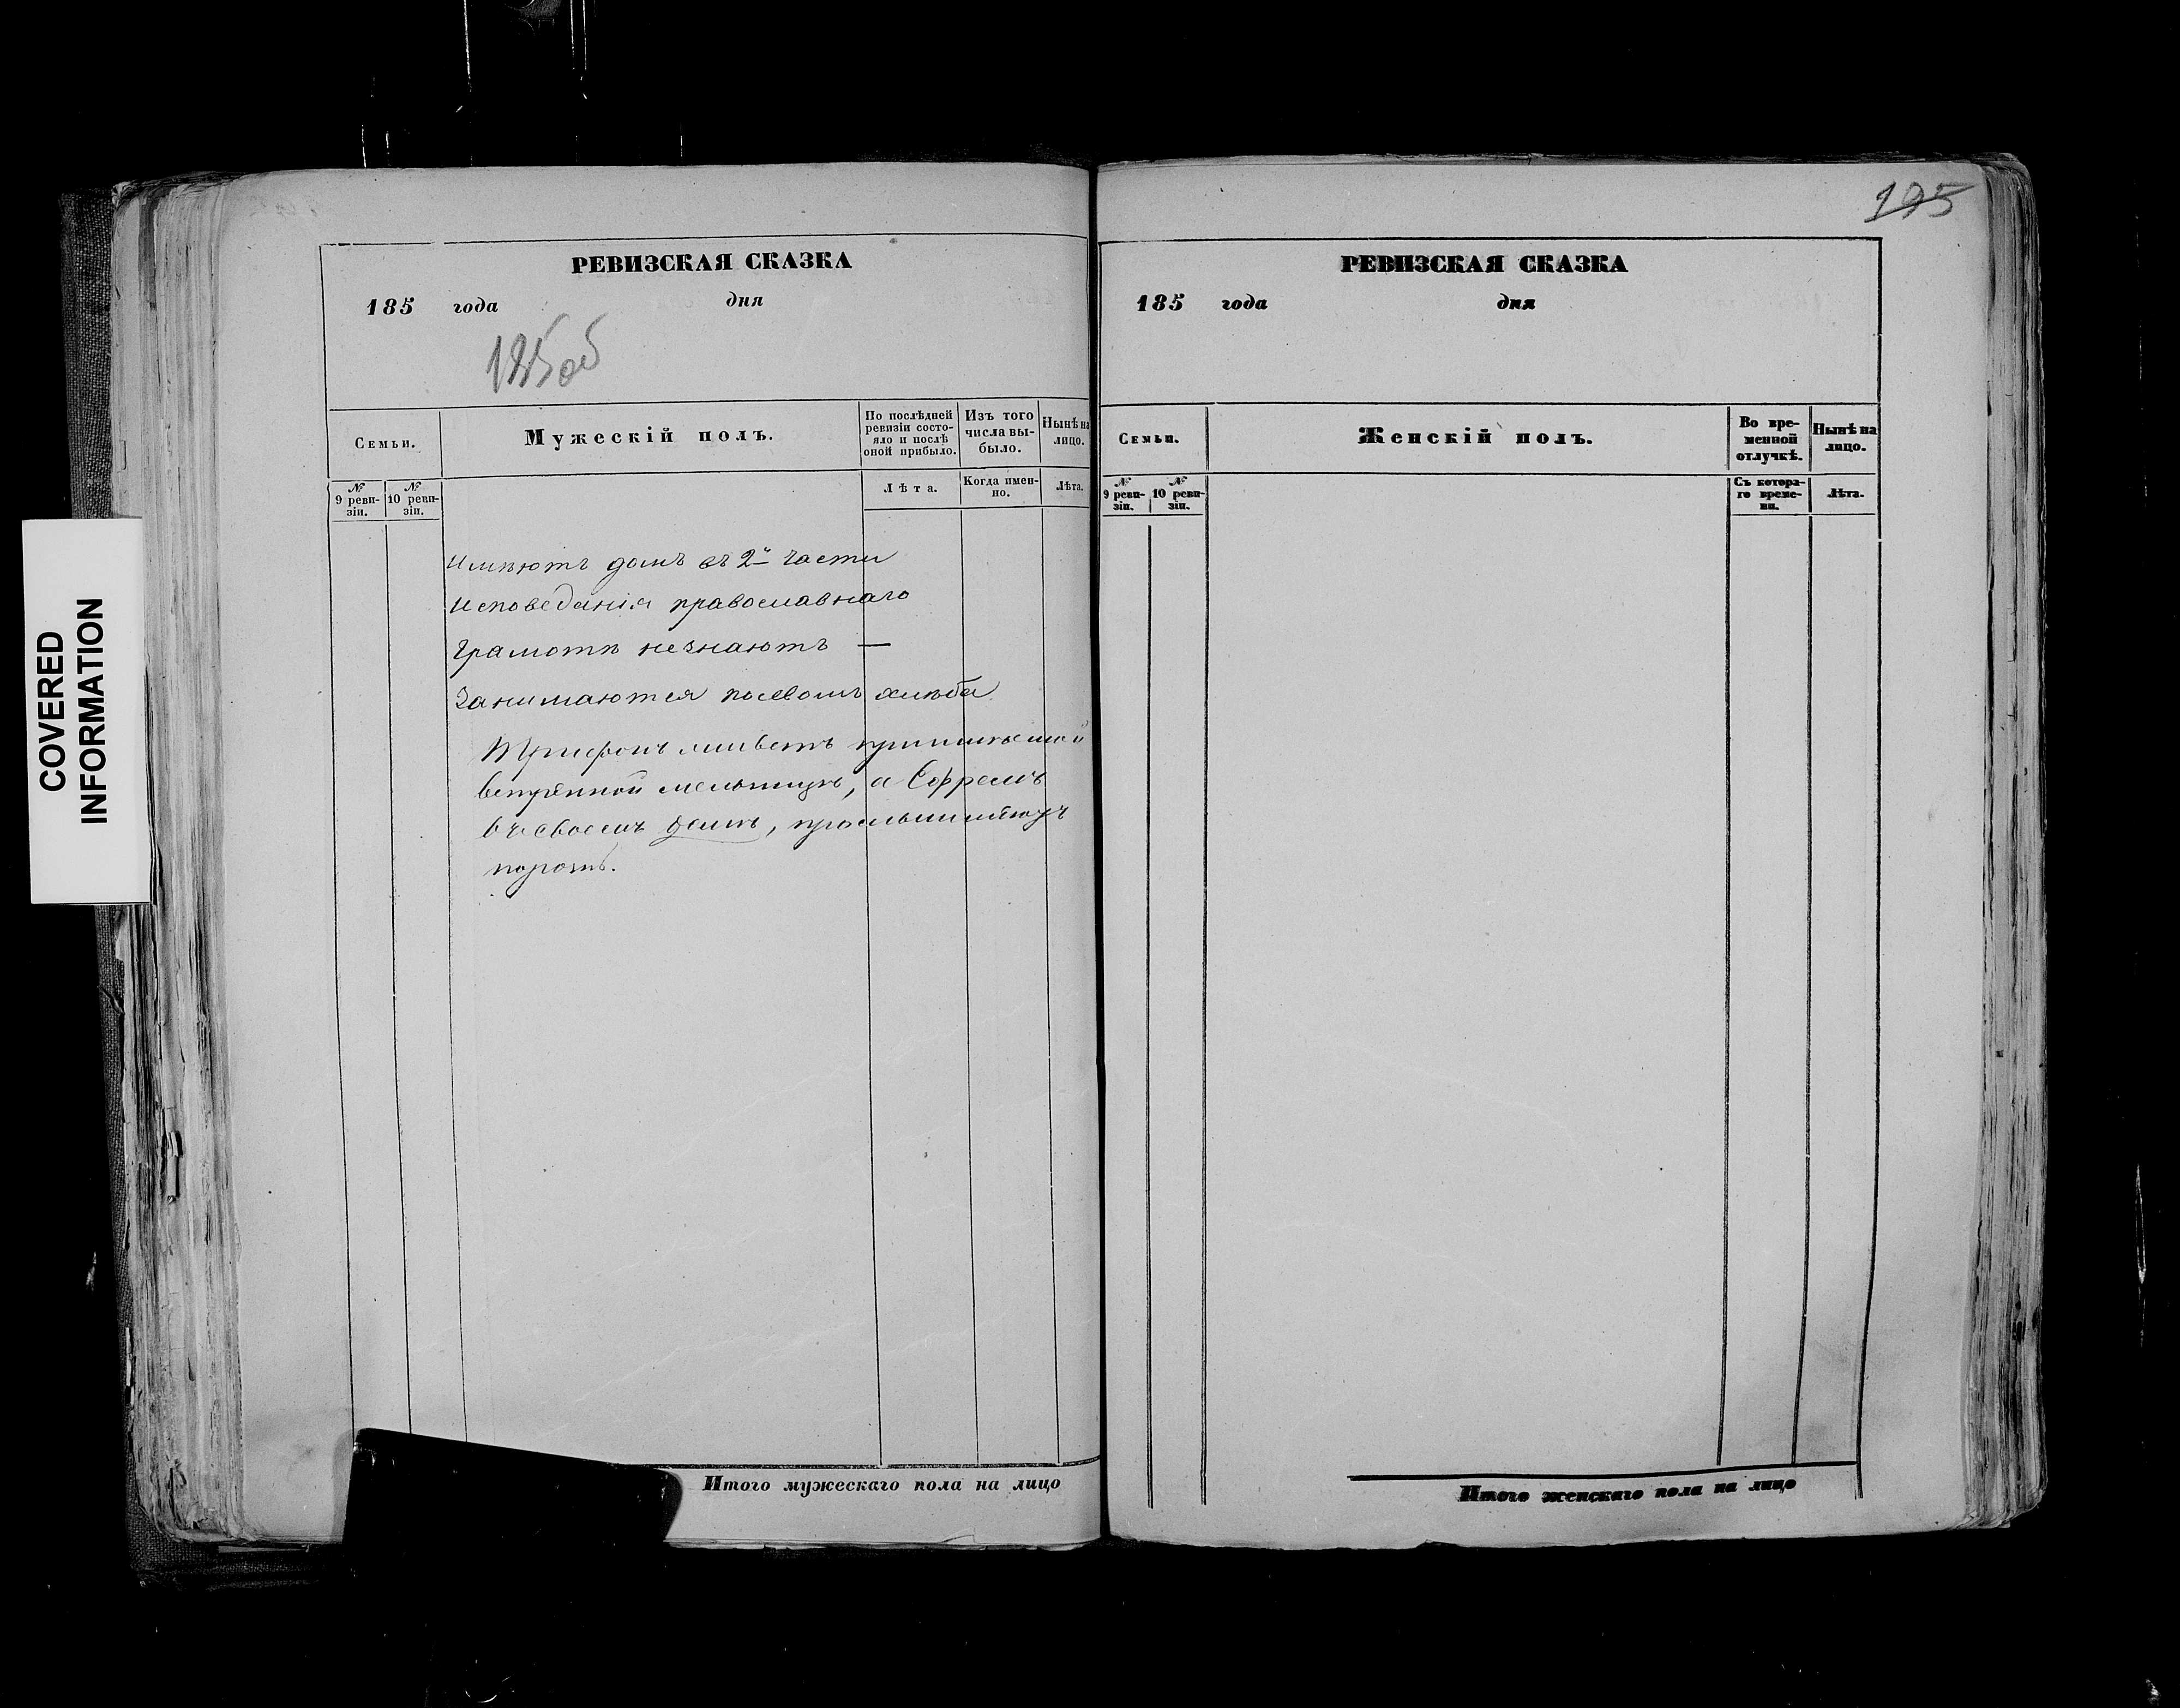 COVERED
INFORMATION
РЕВИЗСКАЯ СКАЗКА
185 года дня
Семьи.
Мужескій полъ.
По послѣдней
ревизіи состо-
яло и послѣ
оной прибыло.
Изъ того
числа вы-
было.
Нынѣ на
лицо.
№
9 реви-
зіи.
№
10 реви-
зіи.
Лѣта.
Когда имен-
но.
Лѣта.
Имѣютъ домъ въ 2й части
Исповеданія православнаго
Грамотѣ незнаютъ —
Занимаются посевомъ хлѣба
Трифонъ живетъ при
ветренной мельницѣ, а Ефремъ
въ своемъ домѣ,
Итого мужескаго пола на лицо
195
РЕВИЗСКАЯ СКАЗКА
185 года дня
Семьи.
Женскій полъ.
Во вре-
менной
отлучкѣ.
Нынѣ на
лицо.
№
9 реви-
зіи.
№
10 реви-
зіи.
Съ котора-
го време-
ни.
Лѣта.
Итого женскаго пола на лицо